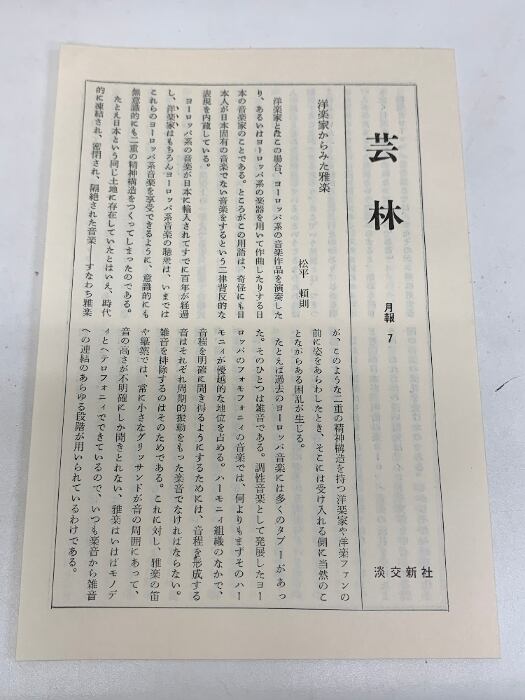 芸林
月報 7
淡交新社
洋楽家からみた雅楽
松平 頼則
洋楽家とはこの場合、ヨーロッパ系の音楽作品を演奏した
り、あるいはヨーロッパ系の楽器を用いて作曲したりする日
本の音楽家のことである。ところがこの用語は、奇怪にも日
本人が日本固有の音楽でない音楽をするという二律背反的な
表現を内蔵している。
ヨーロッパ系の音楽が日本に輸入されてすでに百年が経過
し、洋楽家はもちろんヨーロッパ系音楽の聴衆は、いまでは
これらのヨーロッパ系音楽を享受できるように、意識的にも
無意識的にも二重の精神構造をつくってしまったのである。
たとえ日本という同じ土地に存在していたとはいえ、時代
的に凍結され、密閉され、隔絶された音楽——すなわち雅楽
が、このような二重の精神構造を持つ洋楽家や洋楽ファンの
前に姿をあらわしたとき、そこには受け入れる側に当然のこ
とながらある困乱が生じる。
たとえば過去のヨーロッパ音楽には多くのタブーがあっ
た。そのひとつは雑音である。調性音楽として発展したヨー
ロッパのフォモフォニィの音楽では、何よりもまずそのハー
モニィが優越的な地位を占める。ハーモニィ組織のなかで、
音程を明確に聞き得るようにするためには、音程を形成する
音はそれぞれ周期的振動をもった楽音でなければならない。
雑音を排除するのはそのためである。これに対し、雅楽の笛
や篳篥では、常に小さなグリッサンドが音の周囲にあって、
音の高さが不明確にしか聞きとれない、雅楽はいはばモノデ
ィとヘテロフォニィでできているので、いつも楽音から雑音
への連結のあらゆる段階が用いられているわけである。